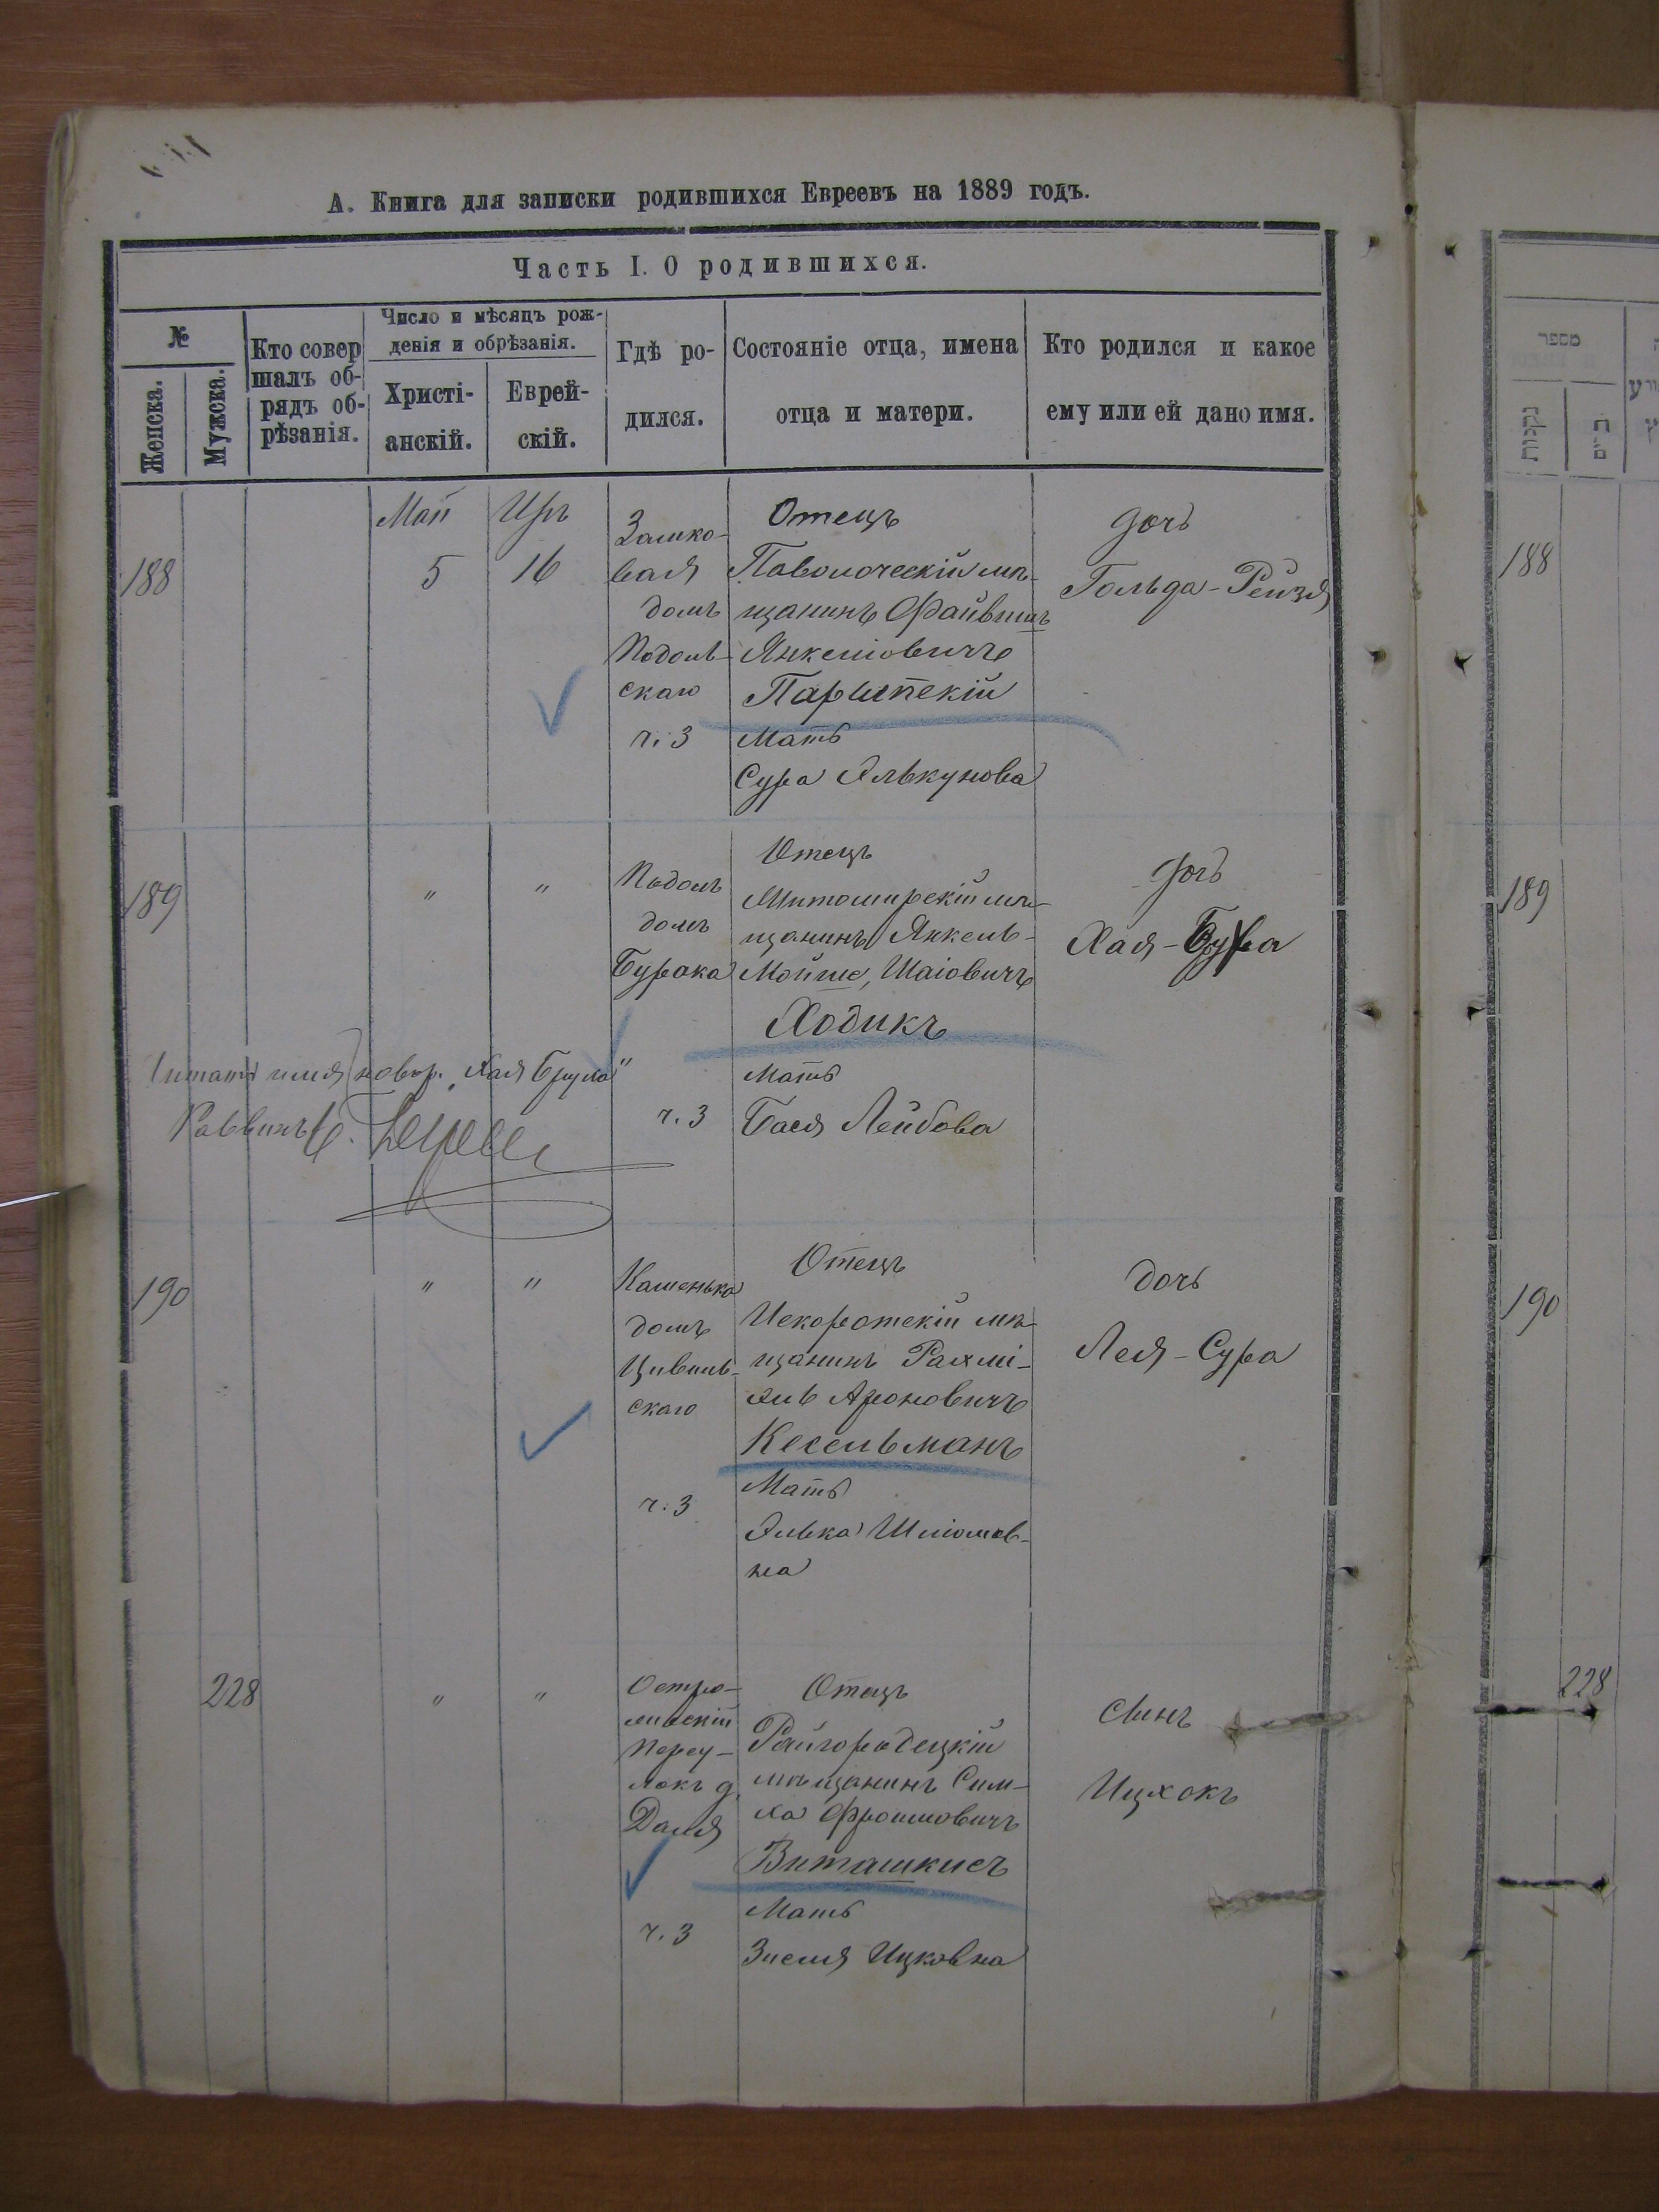 А. Книга для записки родившихся Евреевъ на 1889 годъ.
Часть I. О родившихся.
№
Женска.
Мужска.
Кто совер
шалъ об-
рядъ об-
рѣзанія.
Число и мѣсяцъ рож-
денія и обрѣзанія.
Христі-
анскій.
Еврей-
скій.
Гдѣ ро-
дился.
Состояніе отца, имена
отца и матери.
Кто родился и какое
ему или ей дано имя.
188
Май
5
Иръ
16
Замко-
вая
домъ
Подоль-
скаго
ч. 3
Отецъ
Паволоческій мѣ-
щанинъ Файвишъ
Янкеліовичъ
Парипскій
Мать
Сура Элькунова
дочь
Гольда-Рейзя
189
"
"
Подолъ
домъ
Бурака
ч. 3
Отецъ
Житомирскій мѣ-
щанинъ Янкель-
Мойше, Шаіовичъ
Ходикъ
Мать
Бася Лейбова
дочь
Хая-
Читать имя новор. „Хая Бруха"
Раввинъ
190
"
"
Каменька
домъ
Цивиль-
скаго
ч. 3
Отецъ
Искоротскій мѣ-
щанинъ Рахмі-
эль Ароновичъ
Кесельманъ
Мать
Элька Шліомов-
на
дочь
Лея-Сура
228
"
"
Остро-
Переу-
локъ д.
Даля
ч. 3
Отецъ
Райгородецкій
мѣщанинъ Сим-
ха Фроимовичъ
Виташкисъ
Мать
Зисля Ицковна
сынъ
Ицхокъ
מספר
נקבות
188
189
190
228